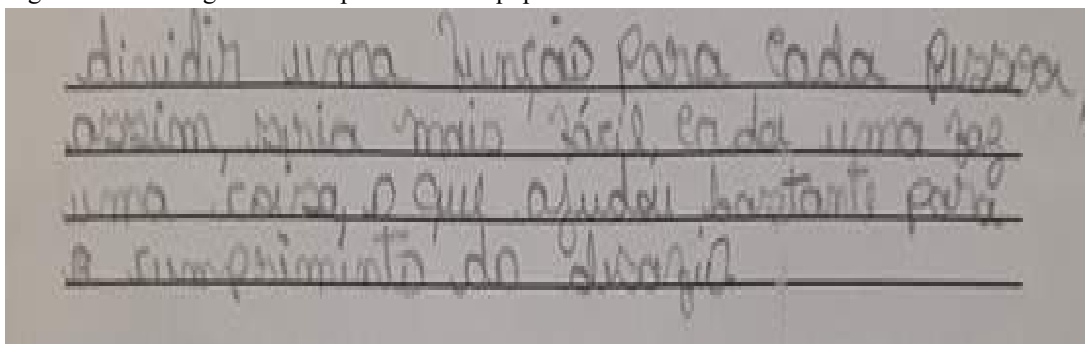 dividir uma função para cada pessoa,
assim, seria mais fácil, cada uma faz
uma coisa, o que ajudou bastante para
o cumprimento do desafio